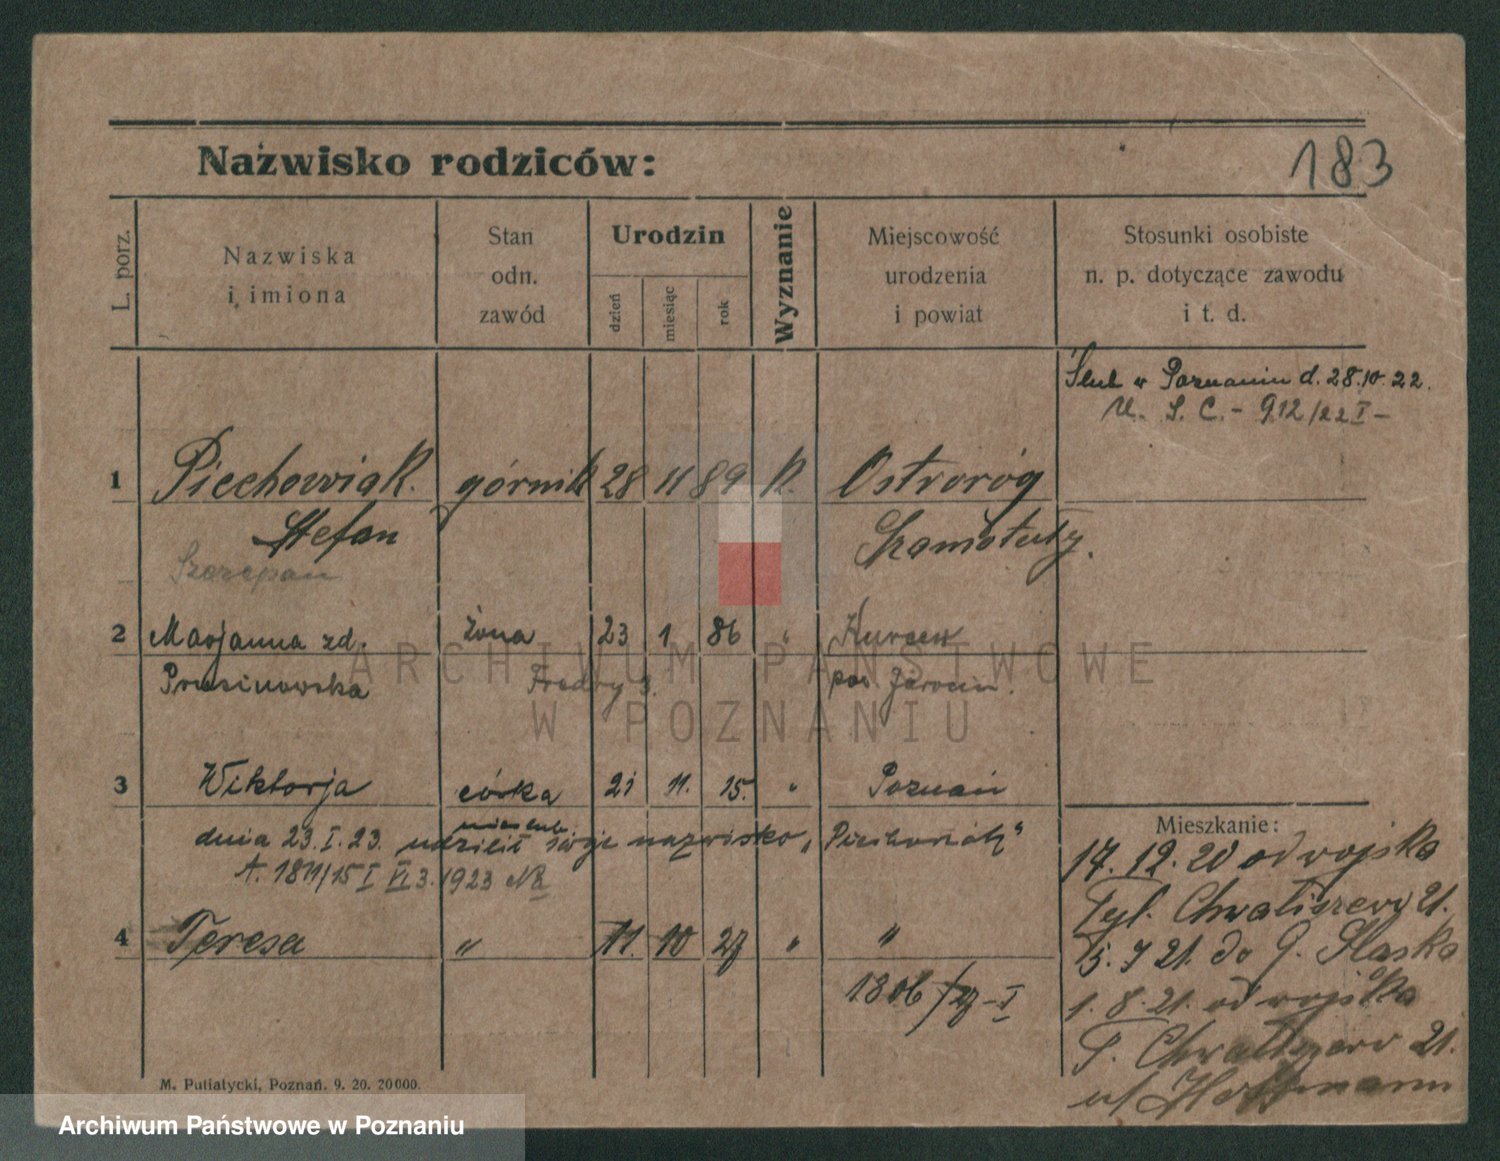 183
Nazwisko rodziców:
L. porz.
Nazwiska
i imiona
Stan
odn.
zawód
Urodzin
dzień
miesiąc
rok
Wyznanie
Miejscowość
urodzenia
i powiat
Stosunki osobiste
n. p. dotyczące zawodu
i t. d.
Ślub w Poznaniu d. 28.10.22.
U. S. C. - 912/22 I -
1 Piechowiak górnik 28 11 89 k. Ostroróg
Stefan Szamotuły.
Szczepan
2 Marjanna zd. żona 23 1 86 " 
Prusinowska Fredry 3. pow Jarocin.
3 Wiktorja córka 21 11. 15. " Poznań
nieślub.
dnia 23. I. 23. udzielił swoje nazwisko „Piechowiak"
A. 1811/15 I VI 3. 1923
4 Teresa " 11. 10 27 " "
1806/27 - I
Mieszkanie:
17. 12. 20 od wojska
Tyl. Chwaliszewo 21.
15. 7 21. do G. Śląska
1. 8. 21. od wojska
T. Chwaliszewo 21.
u/ Hoffmann
M. Putiatycki, Poznań. 9. 20. 20000.
ARCHIWUM PAŃSTWOWE
W POZNANIU
Archiwum Państwowe w Poznaniu